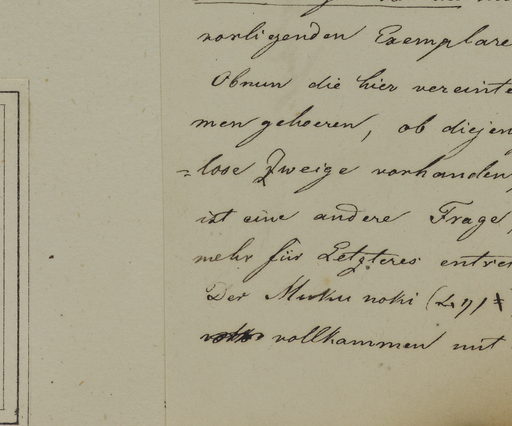 vorligenden Exemplare
Obnun die hier vereinte
men gehoeren, ob diejen
=lose Zweige vorhanden,
ist eine andere Frage,
mehr für Letzteres entre
Der Muku noki (
vollkammen mit